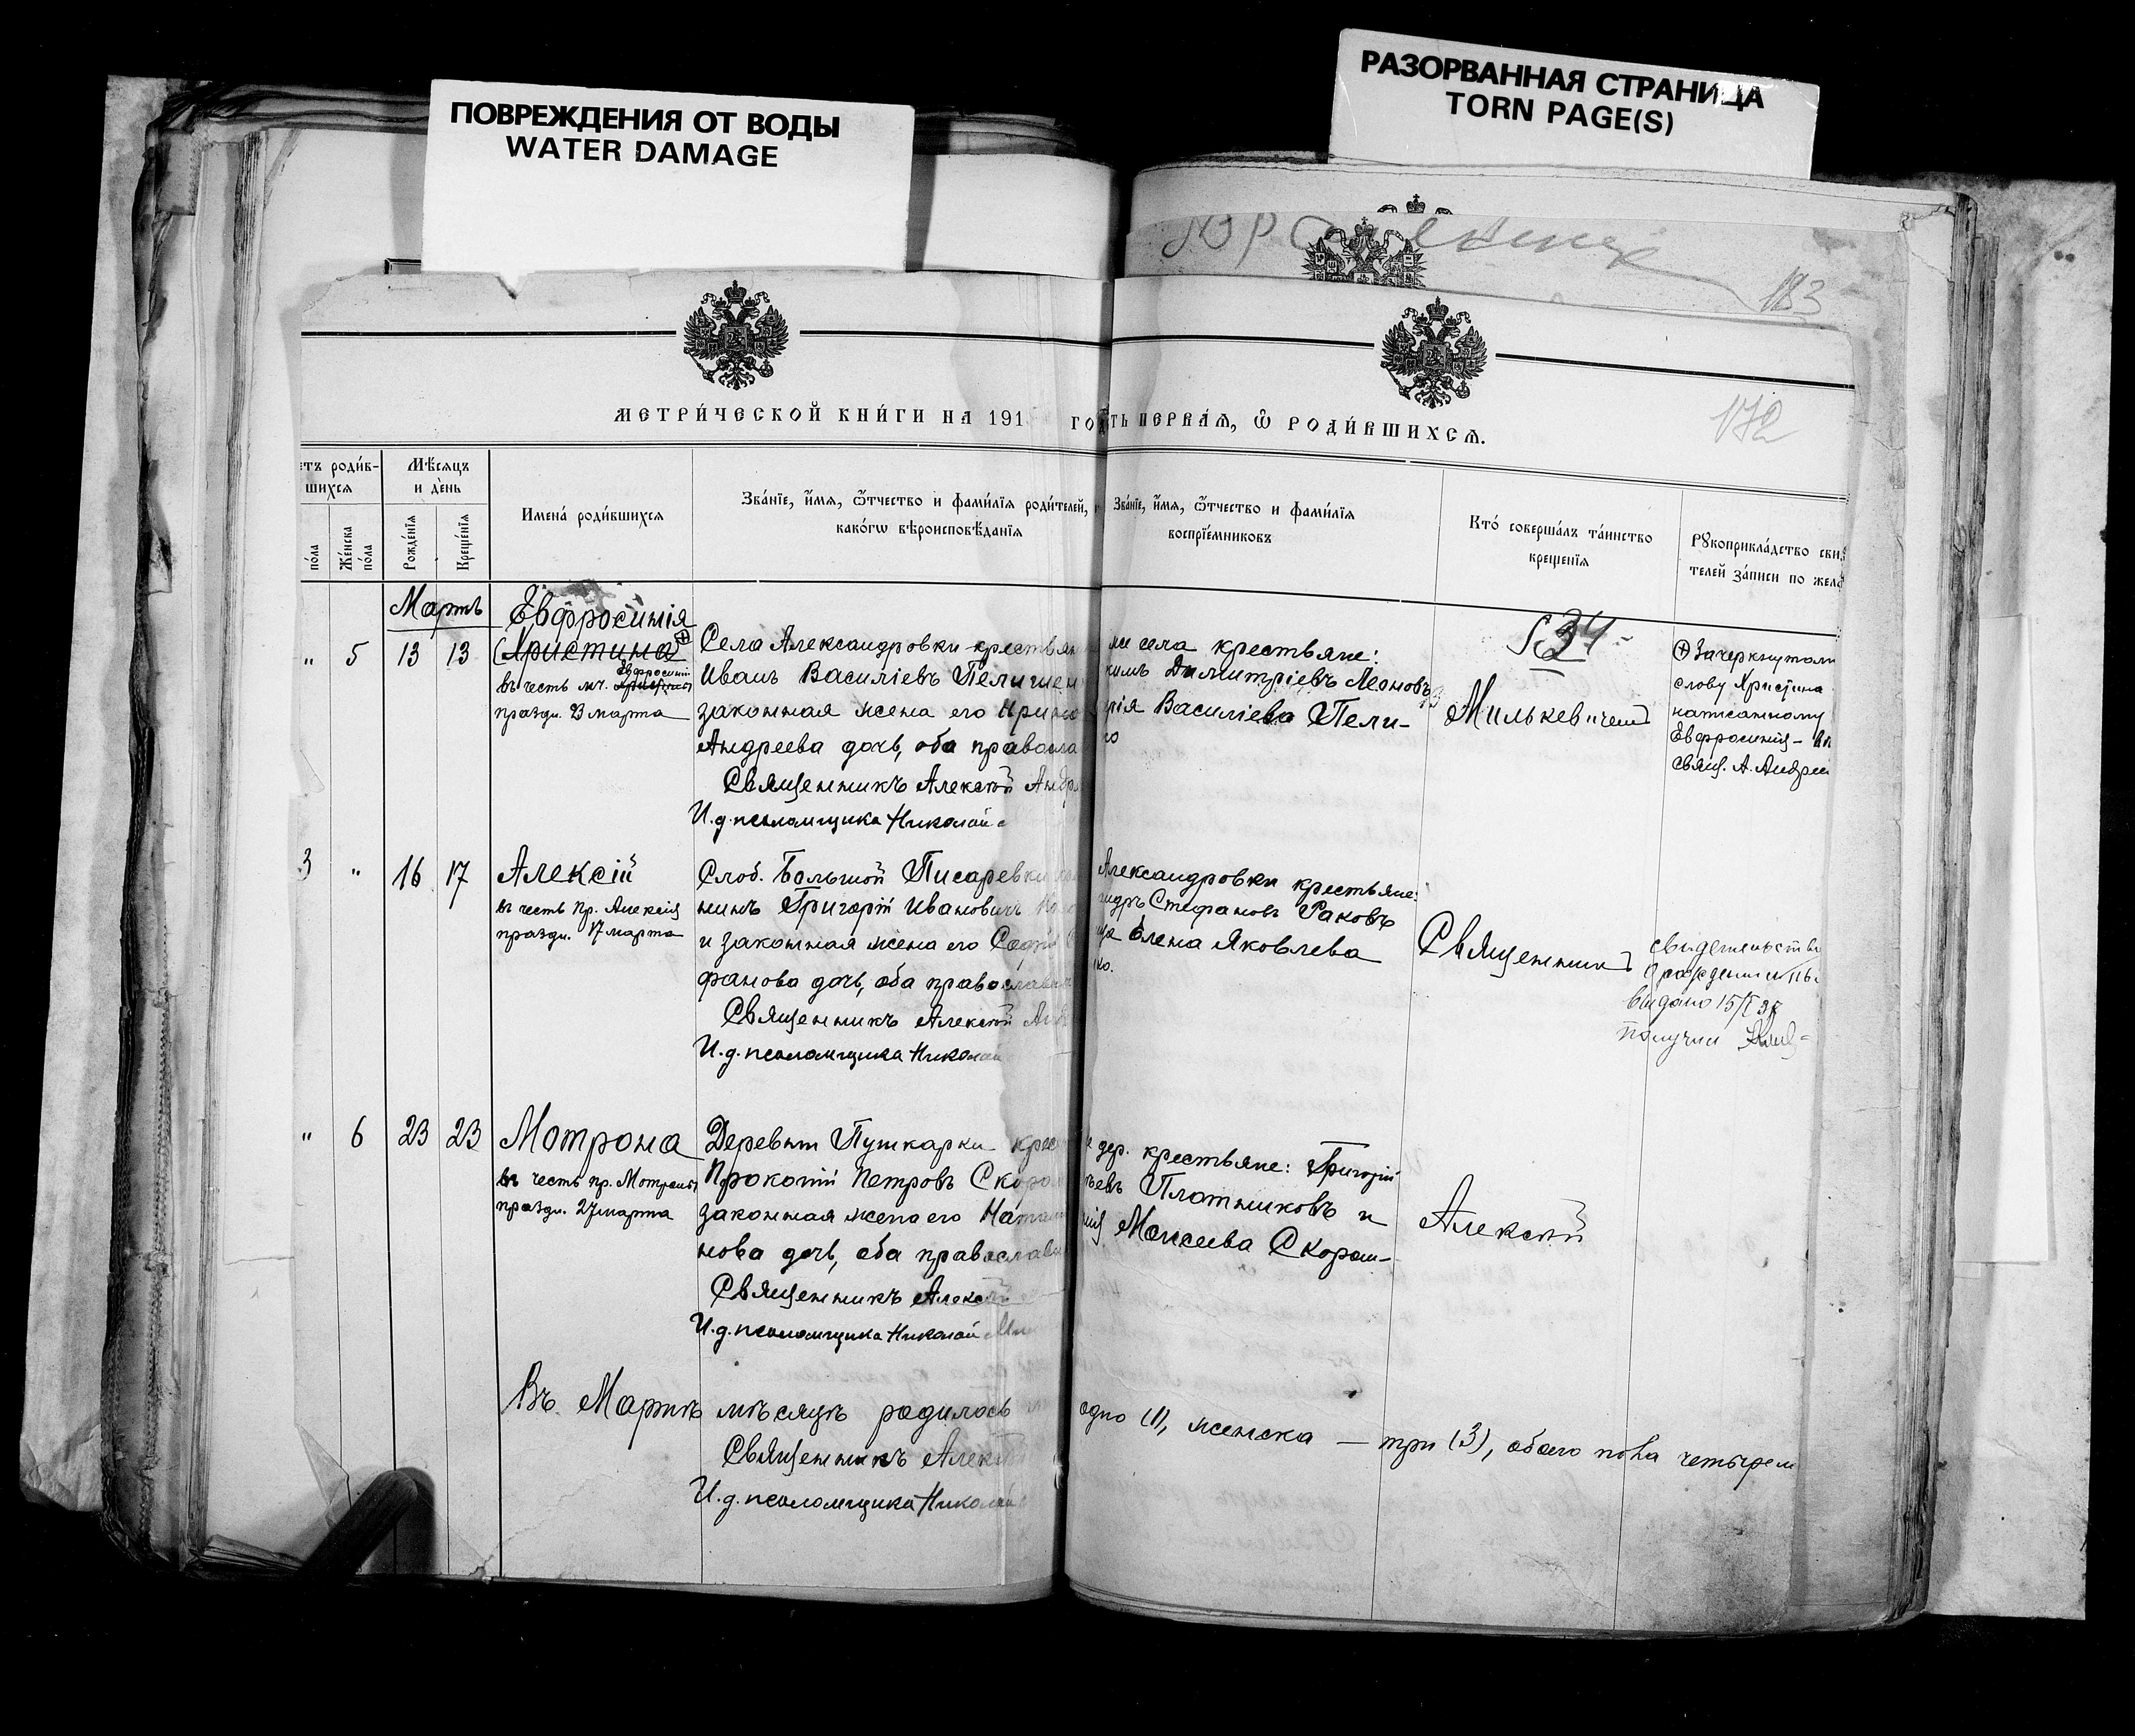 ПОВРЕЖДЕНИЯ ОТ ВОДЫ
WATER DAMAGE
РАЗОРВАННАЯ СТРАНИЦА
TORN PAGE(S)
183
МЕТРИ́ЧЕСКОЙ КНИ́ГИ НА 191
ГО
ТЬ ПЕРВА́Я, Ѿ РОДИ́ВШИХСЯ.
172
етъ роди́в-
шихся
Мѣ́сяцъ
и де́нь
по́ла
Же́нска
по́ла
Рожде́нїя
Креще́нїя
Имена́ роди́вшихся
Зва́нїе, и҆́мя, ѻ҆́тчество и фами́лїя роди́телей, и
како́гѡ вѣроисповѣ́данїя
Зва́нїе, и҆́мя, ѻ҆́тчество и фами́лїя
воспрїе́мниковъ
Кто́ соверша́лъ та́инство
креще́нїя
Рꙋкоприкла́дство сви
телей за́писи по жела
Мартъ
Евфросинія
" 5 13 13
(Христина) ⊕
Евфросиніи
въ честь мч. Христины
праздн. 23 марта
Села Александровки крестьян
Иванъ Василіевъ Пелишен
законная жена его Ирина
Андреева дочь, оба правосла
Священникъ Алексій Андр
И. д. псаломщика Николай
ми села крестьяне:
кимъ Димитріевъ Леоновъ
рія Василіева Пели-
го
534-
Милькевичемъ
⊕ Зачеркнутому
слову Христина
написанному
Евфросинія - в
Свящ. А. Андрее
3 " 16 17
Алексій
въ честь пр. Алексія
праздн. 17 марта
Слоб. Большой Писаревки
нинъ Григорій Ивановичъ
и законная жена его Софія С
фанова дочь, оба православн
Священникъ Алексій Ан
И. д. псаломщика Николай
Александровки крестьяне:
ндръ Стефановъ Раковъ
ца Елена Яковлева
ко.
Священникъ
Свидетельство
о рождении №
выдано 15/I 37
получил
" 6 23 23
Мотрона
въ честь пр. Мотроны
праздн. 27 марта
Деревни Пушкарки крест
Прокопій Петровъ Скором
законная жена его Натал
нова дочь, оба православн
Священникъ Алексій
И. д. псаломщика Николай Ми
е дер. крестьяне: Григорій
ьевъ Плотниковъ и
нія Моисеева Скором-
Алексій
Въ Мартѣ мѣсяцѣ родилось
Священникъ Алексій
И. д. псаломщика Николай
одно (1), женска — три (3), обоего пола четыре